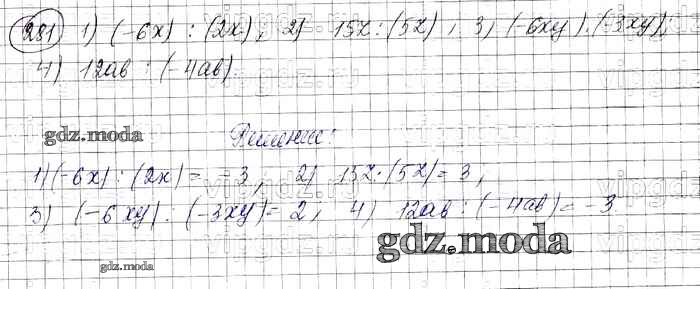 281 1) (-6x) : (2x), 2) 15z : (5z), 3) (-6xy) : (-3xy);
4) 12ab : (-4ab).
gdz.moda
Решение:
1) (-6x) : (2x) = -3, 2) 15z : (5z) = 3,
3) (-6xy) : (-3xy) = 2, 4) 12ab : (-4ab) = -3
gdz.moda
gdz.moda